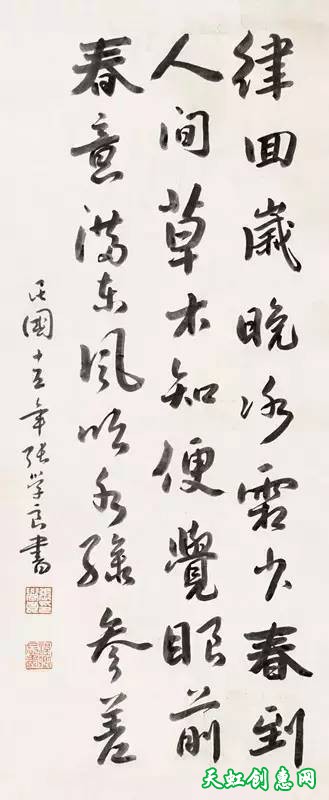 律回歲晚冰霜少春到
人間草木知便覺眼前
春意滿東風吹水綠參差
民國十五年張學良書
天虹创惠网